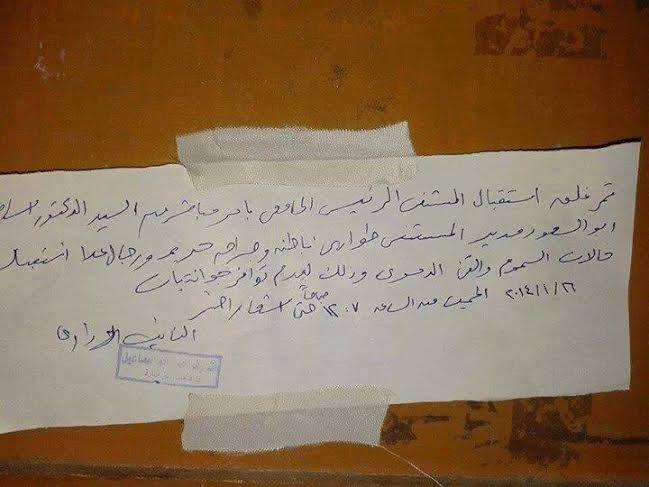 تم غلق استقبال المستشفى الرئيسى الجامعى بأمر مباشر من السيد الدكتور
ابو السعود مدير المستشفى طوارئ باطنه وجراحه حريم ورجال عدا استقبال
حالات السموم والقئ الدموى وذلك لعدم توافر خوانه بات
٢٠١٤/١/٢٦ الخميس من الساعه ١٢٠٧ صباحاً حتى اشعار اخر
النائب الادارى